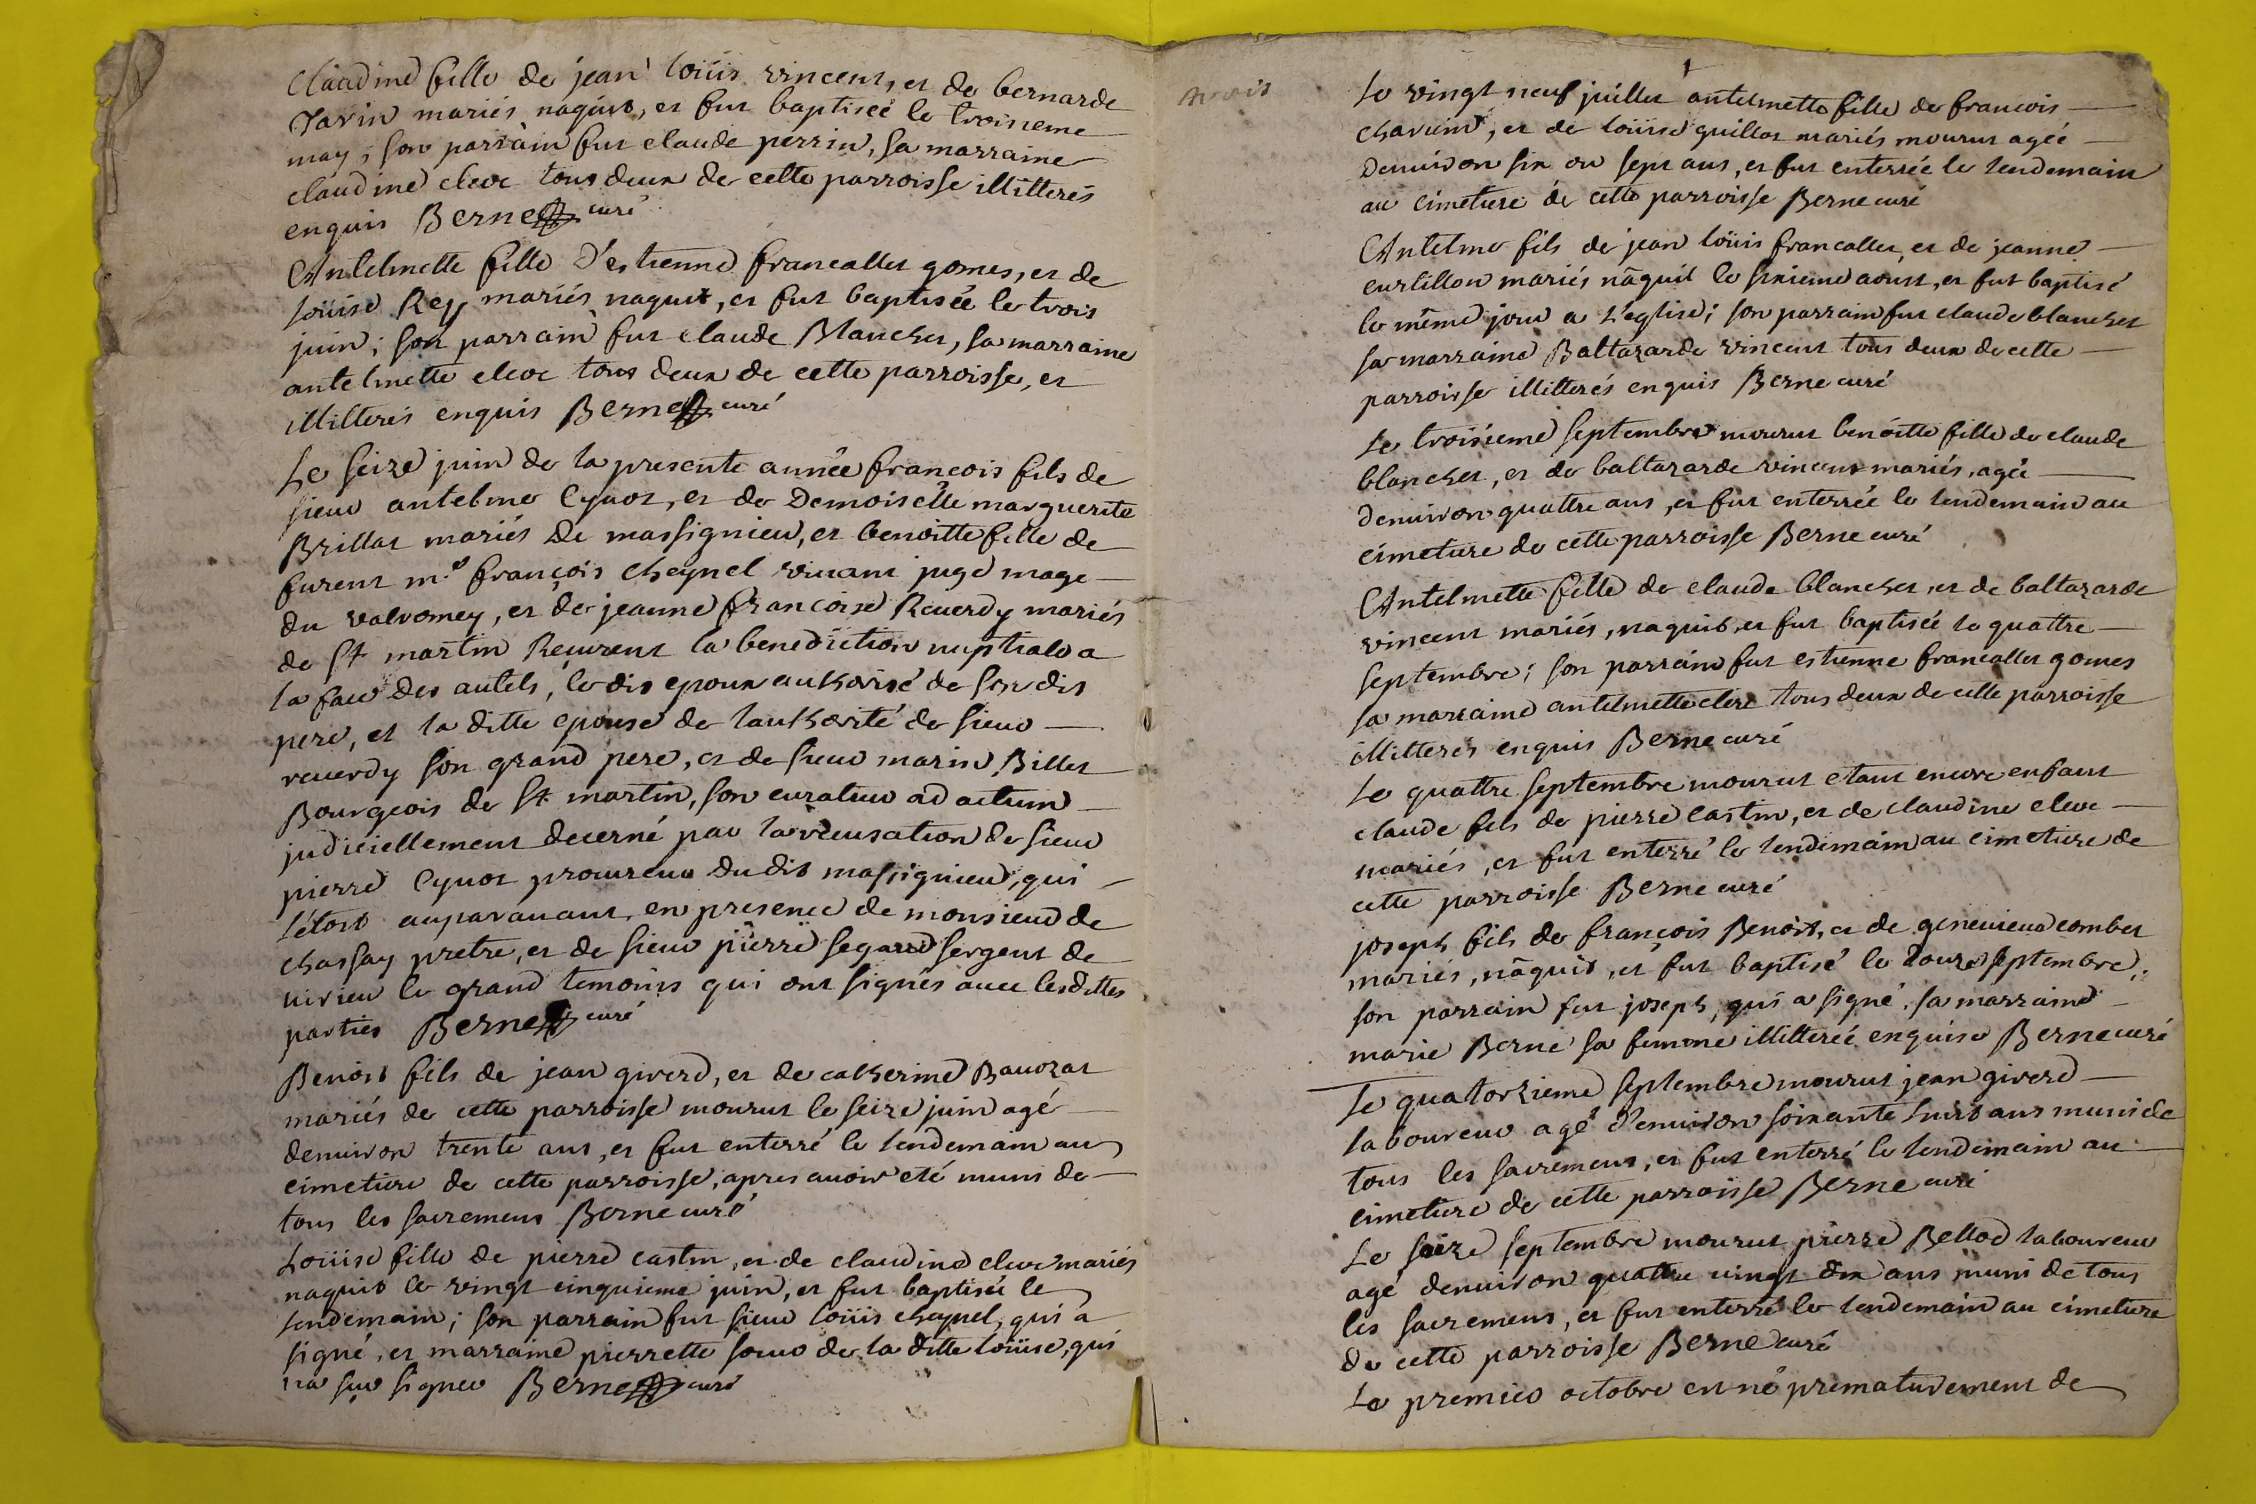 Claudine fille de jean loüis vincent, et de bernarde
Tavin mariés naquit, et fut baptisée le troisieme
may; son parrain fut claude perrin, sa marraine
claudine cleve tous deux de cette parroisse illitterés
enquis Berne curé
Antelmette fille d'estienne francallet gomes, et de
loüise Rey mariés naquit, et fut baptisée le trois
juin; son parrain fut claude Blanchet, sa marraine
antelmette cleve tous deux de cette parroisse, et
illitterés enquis Berne curé
Le seize juin de la presente année francois fils de
sieur antelme Cyvot, et de Demoiselle marguerite
Brillat mariés de massignieu, et benoitte fille de
furent m.e françois cheynel vivant juge mage
du valromey, et de jeanne françoise Reverdy mariés
de st martin Reçurent la benediction nuptiale a
la face des autels, le dit epoux authorisé de son dit
pere, et la ditte epouse de lauthorité de sieur
reverdy son grand pere, et de sieur marin Billet
Bourgeois de st martin, son curateur ad actum
judiciellement decerné par la recusation de sieur
pierre Cyvot procureur dudit massignieu, qui
l'étoit auparavant, en presence de monsieur de
chassay pretre, et de sieur pierre segand sergent de
virieu le grand temoins qui ont signés avec lesdittes
parties Berne curé
Benoit fils de jean giverd, et de catherine Bavozat
mariés de cette parroisse mourut le seize juin agé
denuiron trente ans, et fut enterré le lendemain au
cimetiere de cette parroisse, apres avoir eté muni de
tous les sacremens Berne curé
Loüise fille de pierre castin, et de claudine cleve mariés
naquit le vingt cinquieme juin, et fut baptisée le
lendemain; son parrain fut sieur loüis cheynel, qui a
signé, et marraine pierrette soeur de la ditte loüise, qui
na sçu signer Berne curé
Le vingt neuf juillet antelmette fille de francois
charcin, et de loüise guillot mariés mourut agée
denuiron six ou sept ans, et fut enterrée le lendemain
au cimetiere de cette parroisse Berne curé
Antelme fils de jean loüis francallet, et de jeanne
curtillon mariés nâquit le sixieme aoust, et fut baptisé
le même jour a l'eglise; son parrain fut claude blanchet
sa marraine Baltazarde vincent tous deux de cette
parroisse illitterés enquis Berne curé
Le troisieme septembre mourut benoitte fille de claude
blanchet, et de baltazarde vincent mariés, agée
denuiron quattre ans, et fut enterrée le lendemain au
cimetiere de cette parroisse Berne curé
Antelmette fille de claude blanchet, et de baltazarde
vincent mariés, naquit, et fut baptisée le quattre
septembre; son parrain fut estienne francallet gomes
sa marraine antelmette cleve tous deux de cette parroisse
illitterés enquis Berne curé
Le quattre septembre mourut etant encore enfant
claude fils de pierre castin, et de claudine cleve
mariés, et fut enterré le lendemain au cimetiere de
cette parroisse Berne curé
joseph fils de françois Benoit, et de genevieve combet
mariés, nâquit, et fut baptisé le douze septembre;
son parrain fut joseph, qui a signé, sa marraine
marie Berne sa femme illitterée enquise Berne curé
Le quatorzieme septembre mourut jean giverd
laboureur agé d'enuiron soixante huit ans muni de
tous les sacremens, et fut enterré le lendemain au
cimetiere de cette parroisse Berne curé
Le seize septembre mourut pierre Bellod laboureur
agé denuiron quattre vingt dix ans muni de tous
les sacremens, et fut enterré le lendemain au cimetiere
de cette parroisse Berne curé
Le premier octobre est né prematurement de